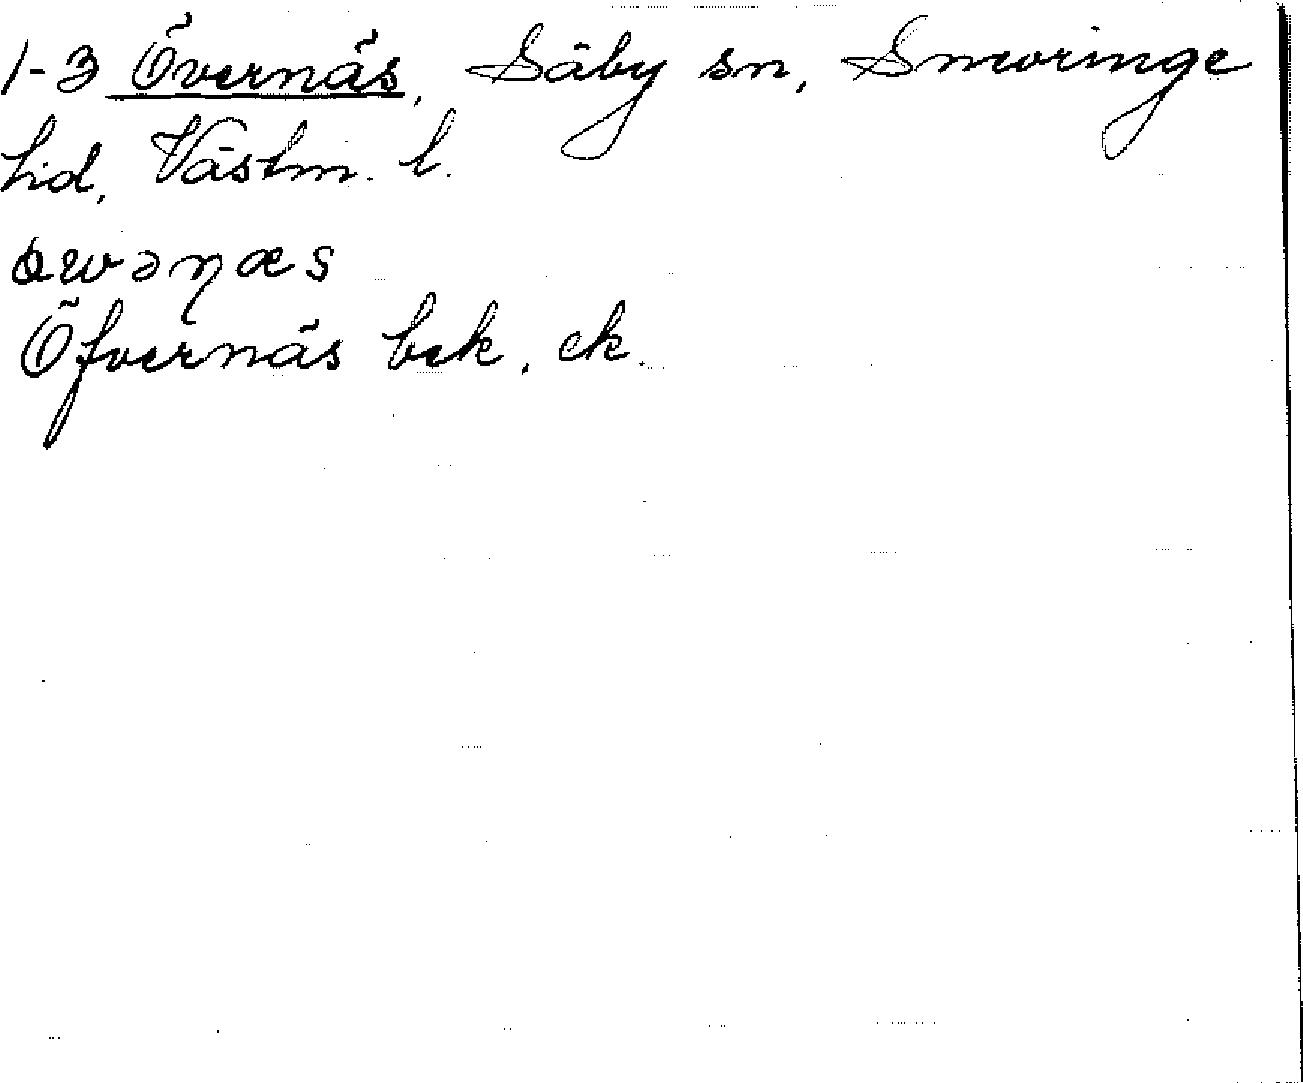 1-3 Övernäs, Säby sn, Snevringe
hd, Västm. l.
Öfvernäs bek. ek.